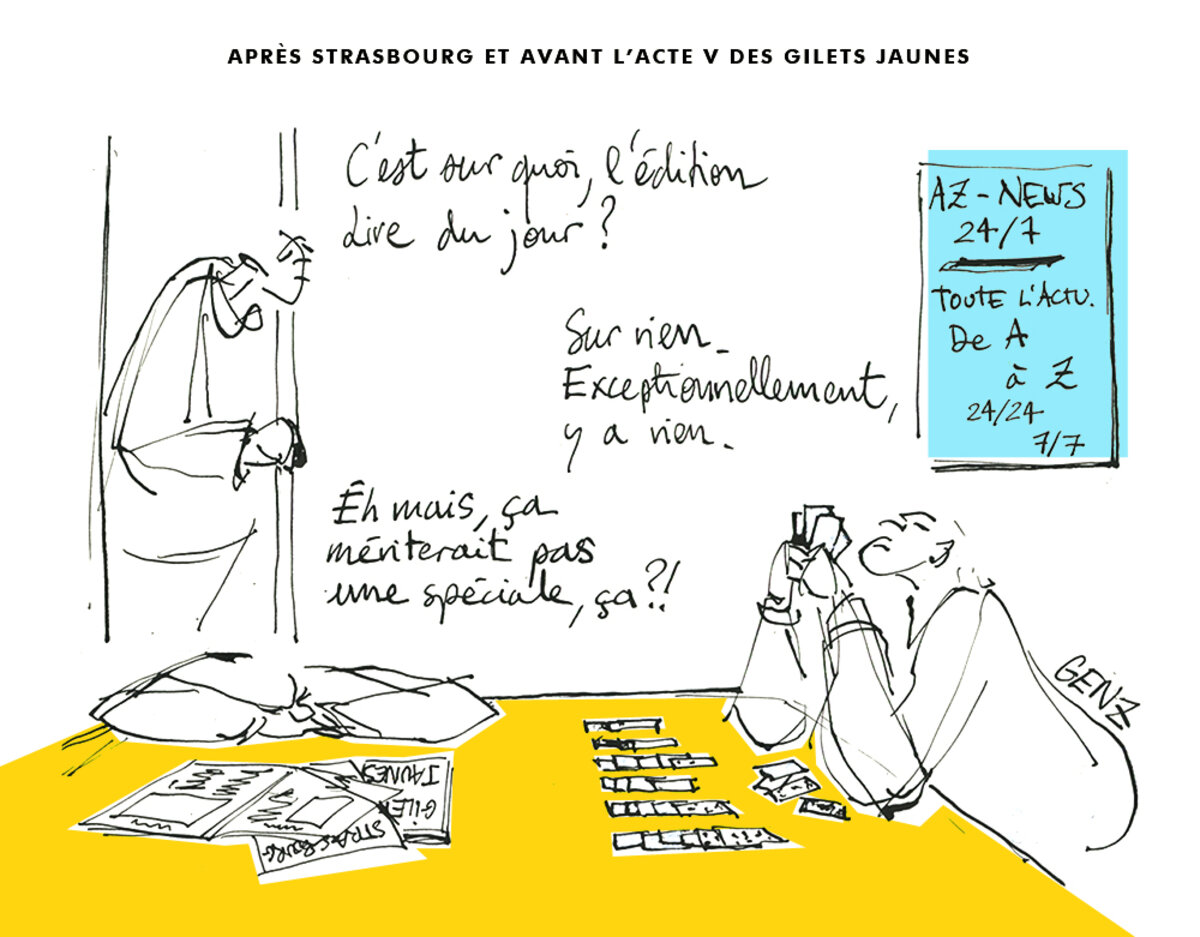 APRÈS STRASBOURG ET AVANT L'ACTE V DES GILETS JAUNES
C'est sur quoi, l'édition
Live du jour ?
Sur rien.
Exceptionnellement,
y a rien.
Êh mais, ça
mériterait pas
une spéciale, ça ?!
AZ-NEWS
24/7
TOUTE L'ACTU.
De A
à Z
24/24
7/7
GENZ
GILET
JAUNES
STRASBOURG